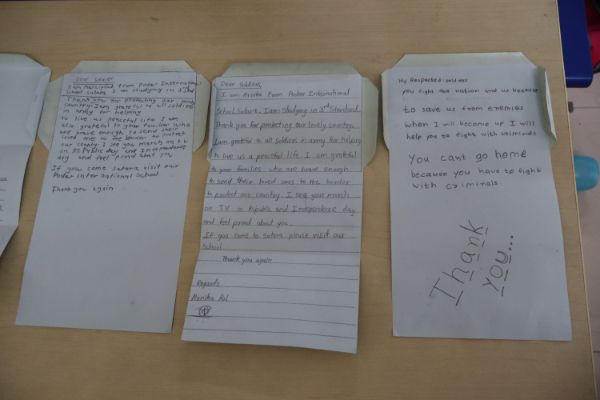 Dear Soldier
I am from Podar International
School Satara I am studying in 3rd
Thank you for protecting our
country. I am grateful to all soldiers
in army for helping
to live our peaceful life I am
also grateful to your families who
are have enough to send their
loved ones to the border to protect
our country I see you march on T.V
on Republic day and Independence
day and feel proud
If you come satara visit our
Podar International School
Thank you again
Dear Soldiers,
I am From Podar International
School Satara. I am studying in 3rd Standard.
Thank you for protecting our lovely country.
I am grateful to all soldiers in army for helping
to live us a peaceful life. I am grateful
to your families who are have enough
to send their loved ones to the border
to protect our country. I see your march
on T.V on Republic and Independence day
and feel proud about you.
If you come to Satara please visit our
School.
Thank you again
Regards
My Respected soldiers
you fight for nation and us because
to save us from enemies
when I will become up I will
help you to fight with criminals
You cant go home
because you have to fight
with criminals
Thank
you...